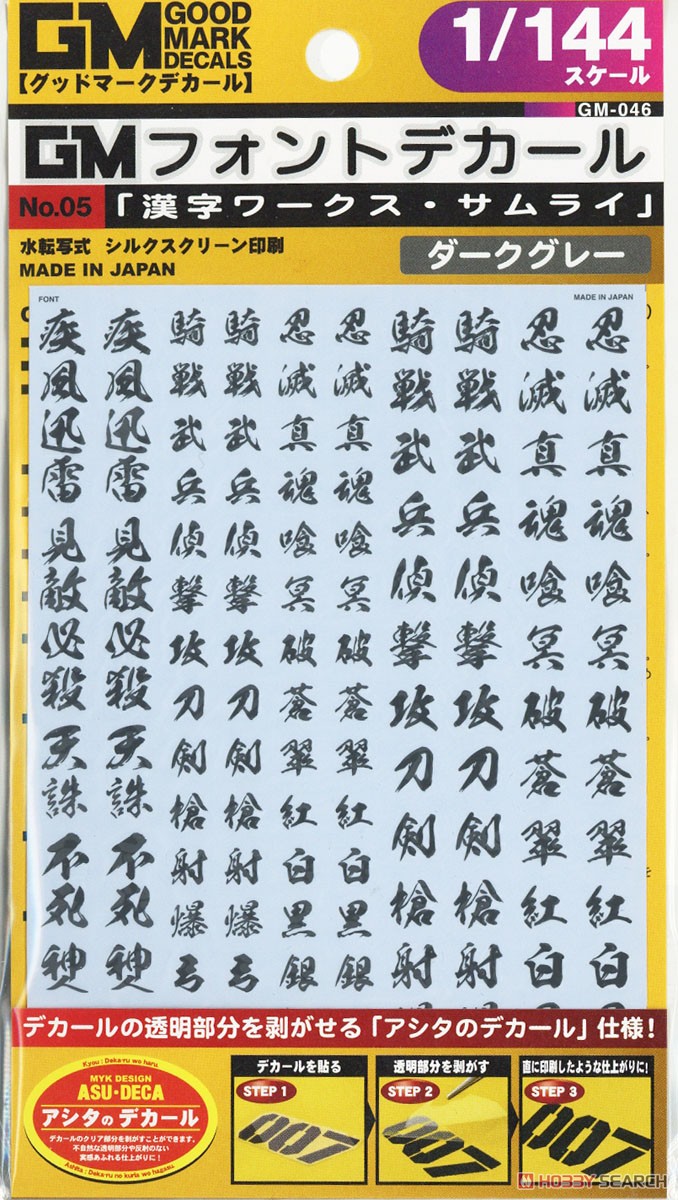 GM GOOD
MARK
DECALS
【グッドマークデカール】
1/144
スケール
GM-046
GMフォントデカール
No.05 「漢字ワークス・サムライ」
水転写式 シルクスクリーン印刷
MADE IN JAPAN
ダークグレー
FONT
MADE IN JAPAN
疾 疾 騎 騎 忍 忍 騎 騎 忍 忍
風 風 戦 戦 滅 滅 戦 戦 滅 滅
迅 迅 武 武 真 真 武 武 真 真
雷 雷 兵 兵 魂 魂 兵 兵 魂 魂
見 見 偵 偵 喰 喰 偵 偵 喰 喰
敵 敵 撃 撃 冥 冥 撃 撃 冥 冥
必 必 攻 攻 破 破 攻 攻 破 破
殺 殺 刀 刀 蒼 蒼 刀 刀 蒼 蒼
天 天 剣 剣 翠 翠 剣 剣 翠 翠
誅 誅 槍 槍 紅 紅 槍 槍 紅 紅
不 不 射 射 白 白 射 射 白 白
死 死 爆 爆 黒 黒
神 神 弓 弓 銀 銀
デカールの透明部分を剥がせる「アシタのデカール」仕様!
Kyou : Deka-ru wo haru.
MYK DESIGN
ASU・DECA
アシタのデカール
デカールのクリア部分を剥がすことができます。
不自然な透明部分や反射のない
実感あふれる仕上がりに!
Ashita : Deka-ru no kuria wo hagasu
デカールを貼る
STEP 1
007
透明部分を剥がす
STEP 2
007
直に印刷したような仕上がりに!
STEP 3
007
HOBBY SEARCH